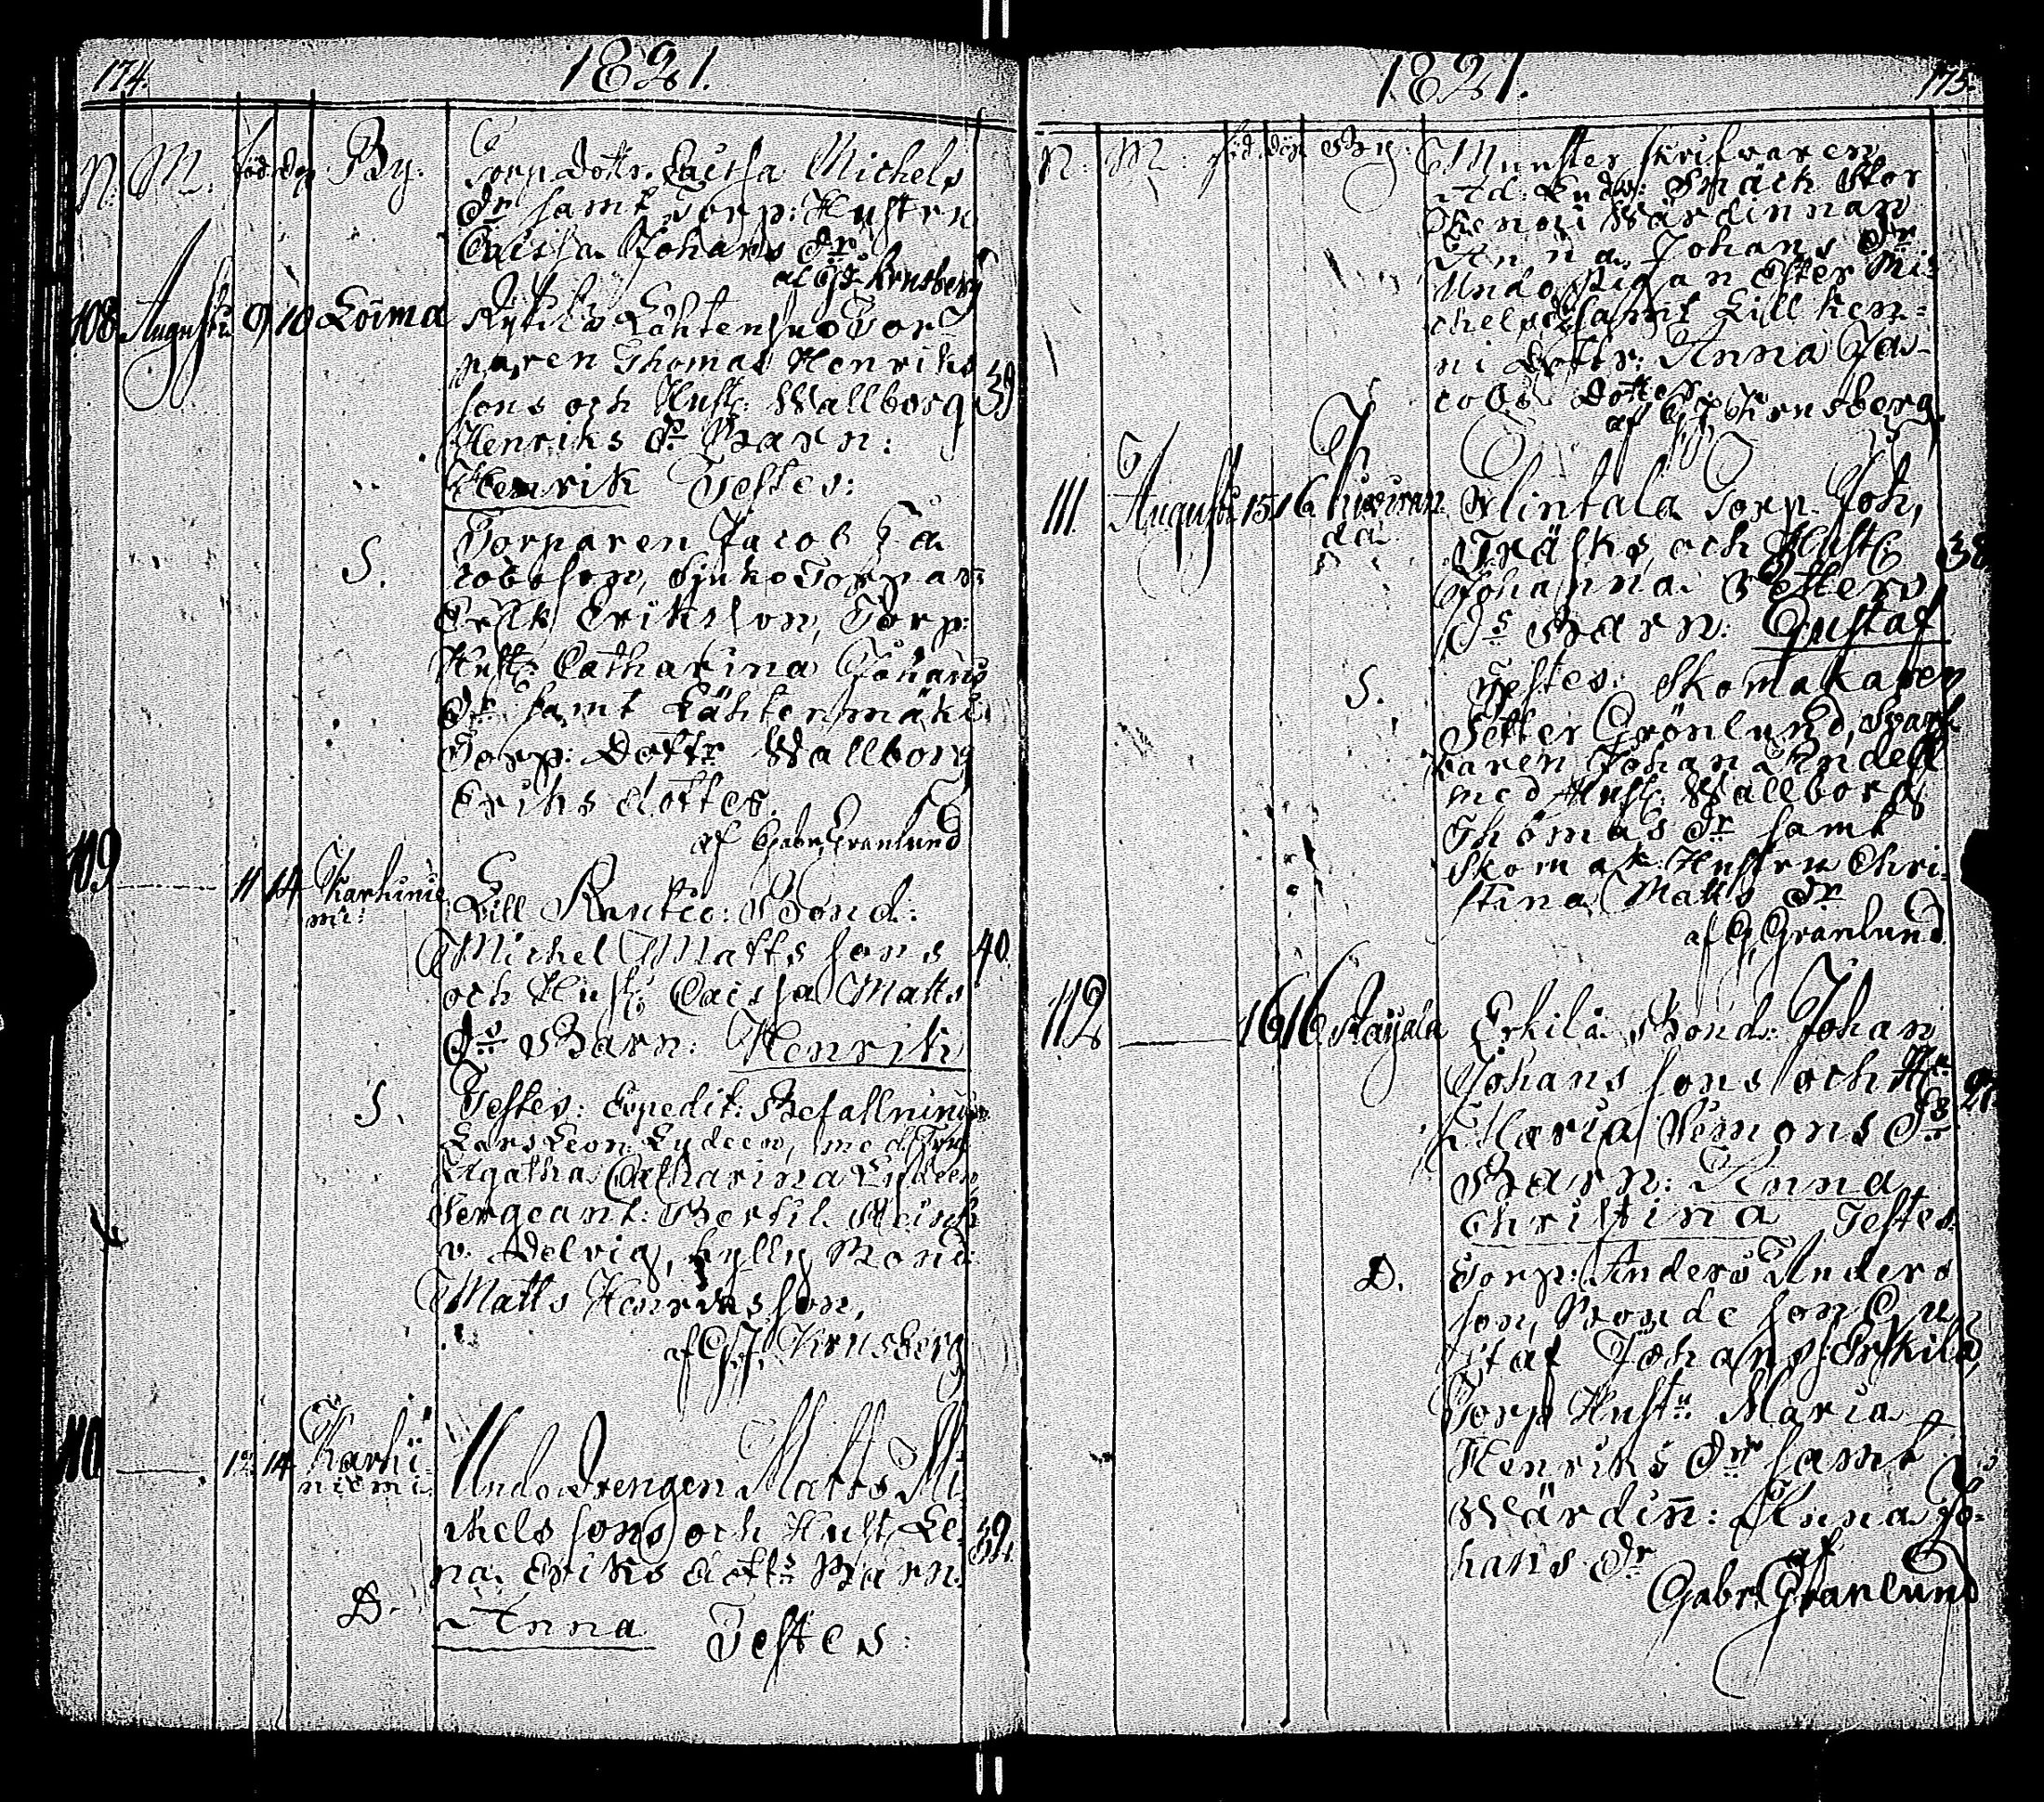 174. 1821.
N: M: föd. döp By: Torp. Dottr. Caisa Michels
Dr samt Torp: Hustrun
Caisa Johans Dr
af Arnsberg
108. Augusti 9 10 Loima Torparen Thomas Henriks
sons och Hust: Wallborg 39
Henriks Ds Barn:
Henrik Testes:
S. Torparen Jacob Ja
cobsson, Torpar:
Erik Eriksson, Torp:
Hust: Catharina Johans
Dr samt Lähtenmäki
Torp: Dottr Wallborg
Eriks dotter.
af Gabr. Granlund
109 — 11 14 Karhinie
mi: Lill Rantio: Bond:
Michel Matts sons 40.
och Hust: Caisa Matts
Ds Barn: Henrik
S. Testes: Expedit: Befallnings
Lars Leon: Lydeen, med Fru
Agatha Catharina Lydeen,
Sergeant: Bertil
v. Delvig, Kylly Bond:
Matts Henriksson,
af G. J. Arnsberg
110 — 12 14 Karhi
niemi Undo Drengen Matts Mi
chels sons och Hust: Le 32.
na Eriks dottrs Barn.
D. Anna Testes:
1821. 175.
N: M: föd. döp By: Munster skrifvaren
Ad: Ludv: Späck Stor
Kenoi Wärdinnan
Anna Johans Dr
Undo Pigan Ester Mi:
chels Dr samt Lill Ken:
ni Dottr: Anna Ja-
cobs Dotter
af G J Arnsberg.
111 Augusti 15 16 Huiwran
da Hintala Torp. Joh,
Träsks och Hust: 38
Johanna Petters
Ds Barn: Gustaf
S. Testes: Skomakaren
Petter Grönlund, Svarf
varen Johan Lindell
med Hust: Wallborg
Thomas Dr samt
Skomak: Hustru Chri-
stina Matts Dr
af G Granlund
112 — 16 16 Raijala Erkilä Bond: Johan
Johans sons och Hu 27.
Maria Simons Ds
Barn: Anna
Christina Testes
D. Torp: Anders Anders
son, Bonde son Gu
staf Johans: Erkilä
Torp Hustr: Maria
Henriks Dr samt
Wärdin̄: Anna Jo-
hans Dr
af
Gabr. Granlund